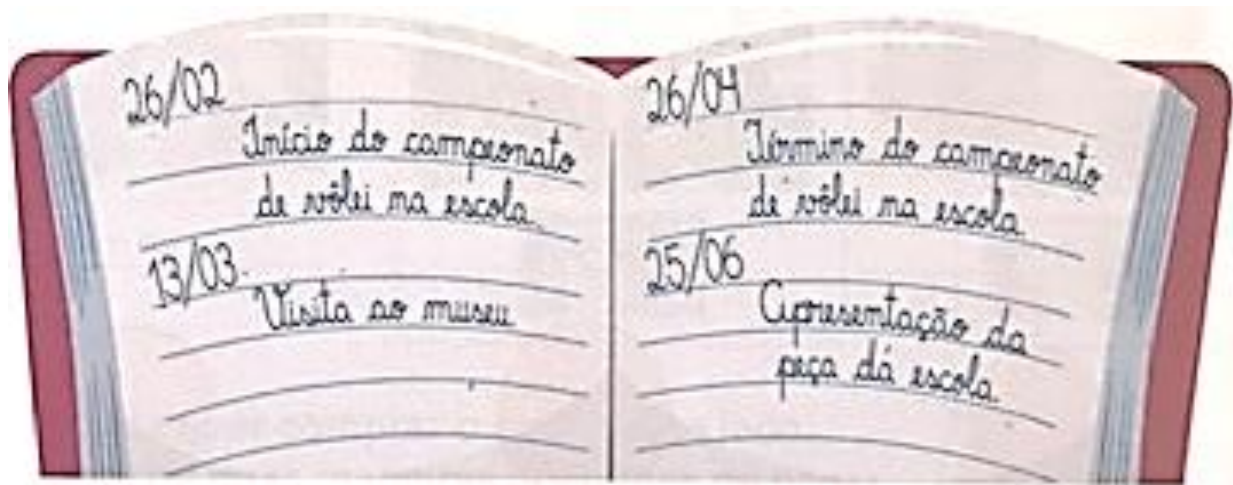 26/02
Início do campeonato
de vôlei na escola.
13/03
Visita ao museu
26/04
Término do campeonato
de vôlei na escola
25/06
Apresentação da
peça dá escola.